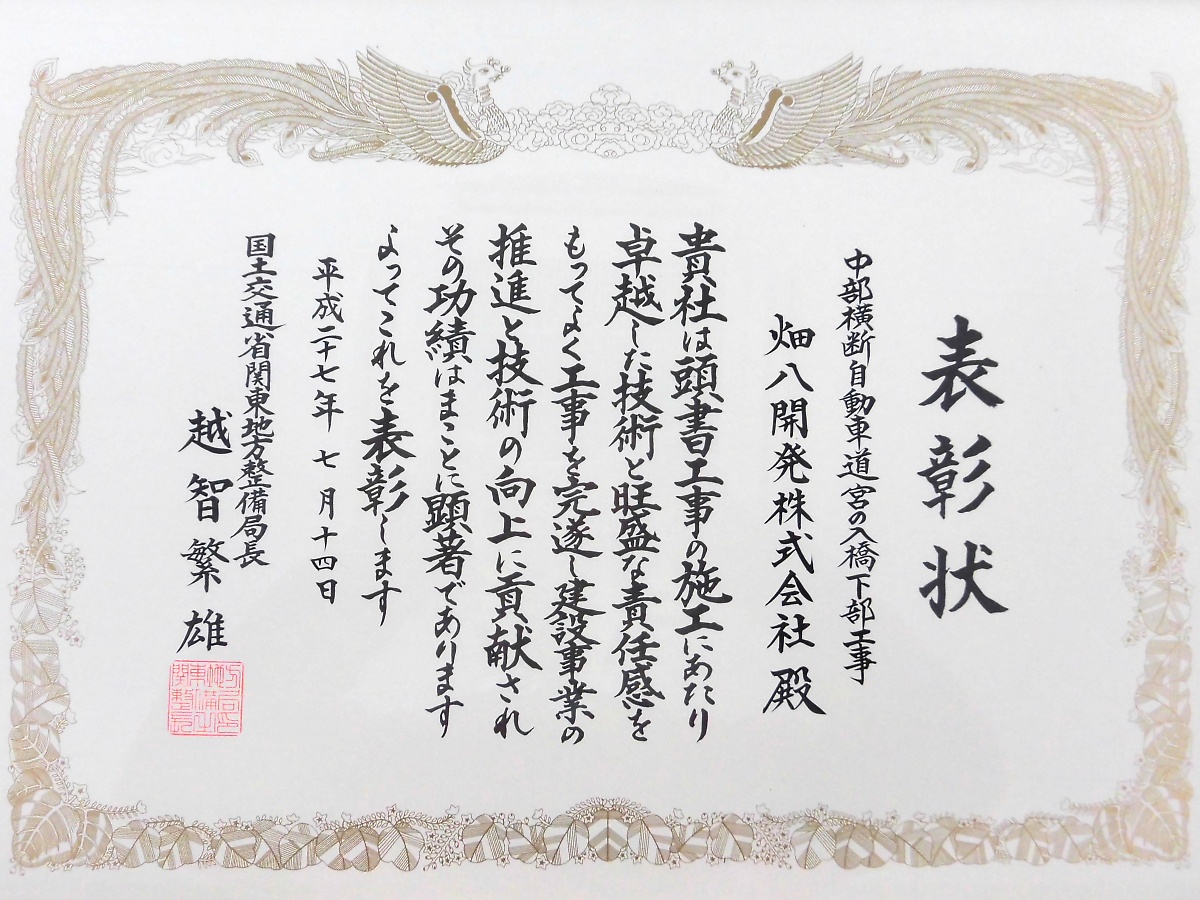 表彰状
中部横断自動車道宮の入橋下部工事
畑八開発株式会社 殿
貴社は頭書工事の施工にあたり
卓越した技術と旺盛な責任感を
もってよく工事を完遂し建設事業の
推進と技術の向上に貢献され
その功績はまことに顕著であります
よってこれを表彰します
平成二十七年 七月十四日
国土交通省関東地方整備局長
越智繁雄